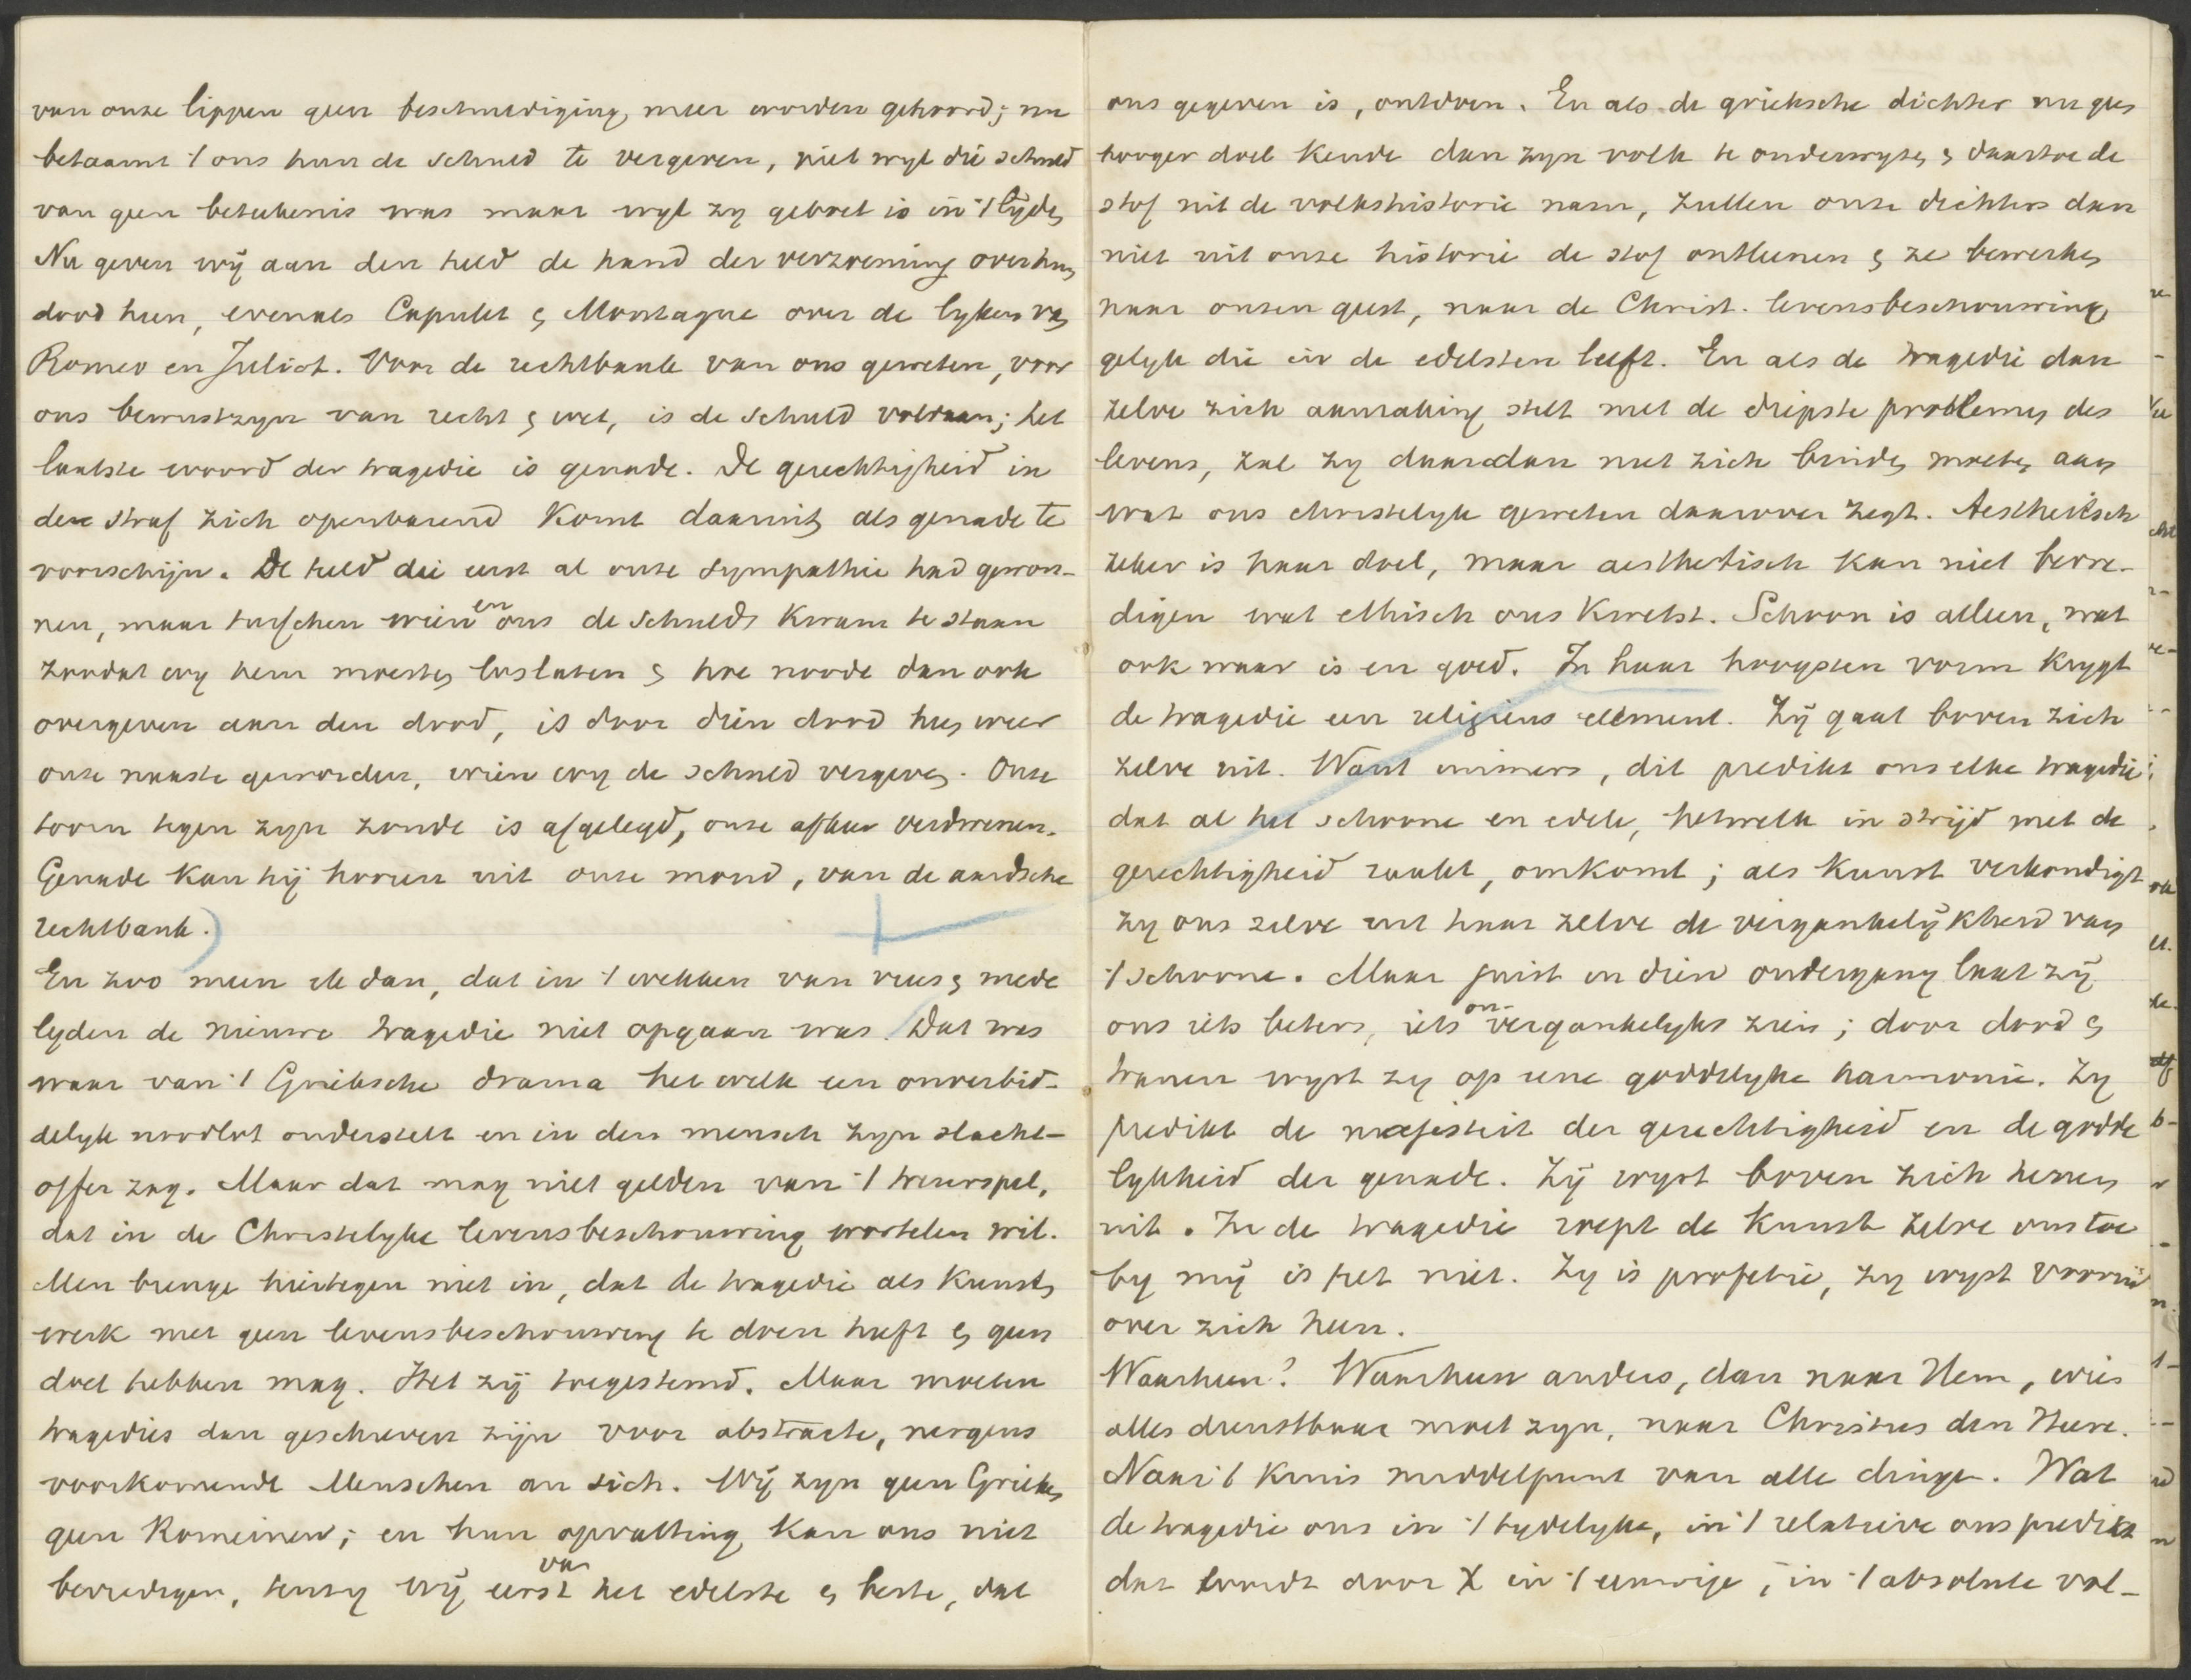 van onze lippen geen beschuldiging meer worden gehoord; nu
betaamt 't ons hun de schuld te vergeven, niet wyl die schuld
van geen beteekenis was maar wyl zy geboet is in 't lijden
Nu geven wij aan den held de hand der verzoening over hun
dood heen, evenals Capulet & Montague over de lyken van
Romeo en Juliet. Voor de rechtbank van ons geweten, voor
ons bewustzyn van recht & wet, is de schuld voldaan; het
laatste woord der tragedie is genade. De gerechtigheid in
den straf zich openbarend komt daaruit als genade te
voorschijn. De held die eerst al onze sympathie had gewon-
nen, maar tusschen wien en ons de schuld kwam te staan
zoodat wy hem moesten loslaten & hoe noode dan ook
overgeven aan den dood, is door dien dood heen weer
onze naaste geworden, wien wy de schuld vergeven. Onze
toorn tegen zyn zonde is afgelegd, onze afkeer verdwenen.
Genade kan hij hooren uit onze mond, van de aardsche
rechtbank.)
En zoo meen ik dan, dat in 't wekken van vrees & mede
lyden de nieuwe tragedie niet opgaan was. Dat was
waar van 't Grieksche drama het welk een onverbid-
delyk noodlot onderstelt en in den mensch zyn slacht-
offer zag. Maar dat mag niet gelden van 't treurspel,
dat in de Christelyke levensbeschouwing wortelen wil.
Men brenge hiertegen niet in, dat de tragedie als kunst
werk met geen levensbeschouwing te doen heeft & geen
doel hebben mag. Het zij toegestemd. Maar moeten
tragedies dan geschreven zijn voor abstracte, nergens
voorkomende Menschen an sich. Wij zyn geen Grieken
geen Romeinen; en hun opvatting kan ons niet
bevredigen, tenzy wij eerst van het edelste & beste, dat
ons gegeven is, ontdoen. En als de grieksche dichter nu geen
hooger doel kende dan zyn volk te onderwyzen & daartoe de
stof uit de volkshistorie nam, zullen onze dichters dan
niet uit onze historie de stof ontleenen & ze bewerken
naar onzen geest, naar de Christ. levensbeschouwing
gelyk die in de edelsten leeft. En als de tragedie dan
zelve zich aanraking stelt met de diepste problemen des
levens, zal zy daardan met zich binden moeten aan
wat ons christelyk geweten daarover zegt. Aesthetisch
zeker is haar doel, maar aesthetisch kan niet bevre-
digen wat ethisch ons kwetst. Schoon is alleen, wat
ook waar is en goed. In haar hoogsten vorm krygt
de tragedie een religieus element. Zij gaat boven zich
zelve uit. Want immers, dit predikt ons elke tragedie
dat al het schoone en edele, hetwelk in strijd met de
gerechtigheid raakt, omkomt; als kunst verkondigt
zy ons zelve uit haar zelve de vergankelijkheid van
't schoone. Maar juist in dien ondergang laat zij
ons iets beters, iets on-vergankelyks zien; door dood &
tranen wyst zy op eene goddelyke harmonie. Zy
predikt de majesteit der gerechtigheid en de godde
lykheid der genade. Zij wyst boven zich henen
uit. In de tragedie roept de kunst zelve ons toe
by mij is het niet. Zy is profetie, zy wyst vooruit
over zich heen.
Waarheen? Waarheen anders, dan naar Hem, wien
alles dienstbaar moet zyn, naar Christus den Heere.
Naar 't kruis middelpunt van alle dingen. Wat
de tragedie ons in 't tydelyke, in 't relatieve ons predikt
dat wordt door X in 't eeuwige, in 't absolute vol-